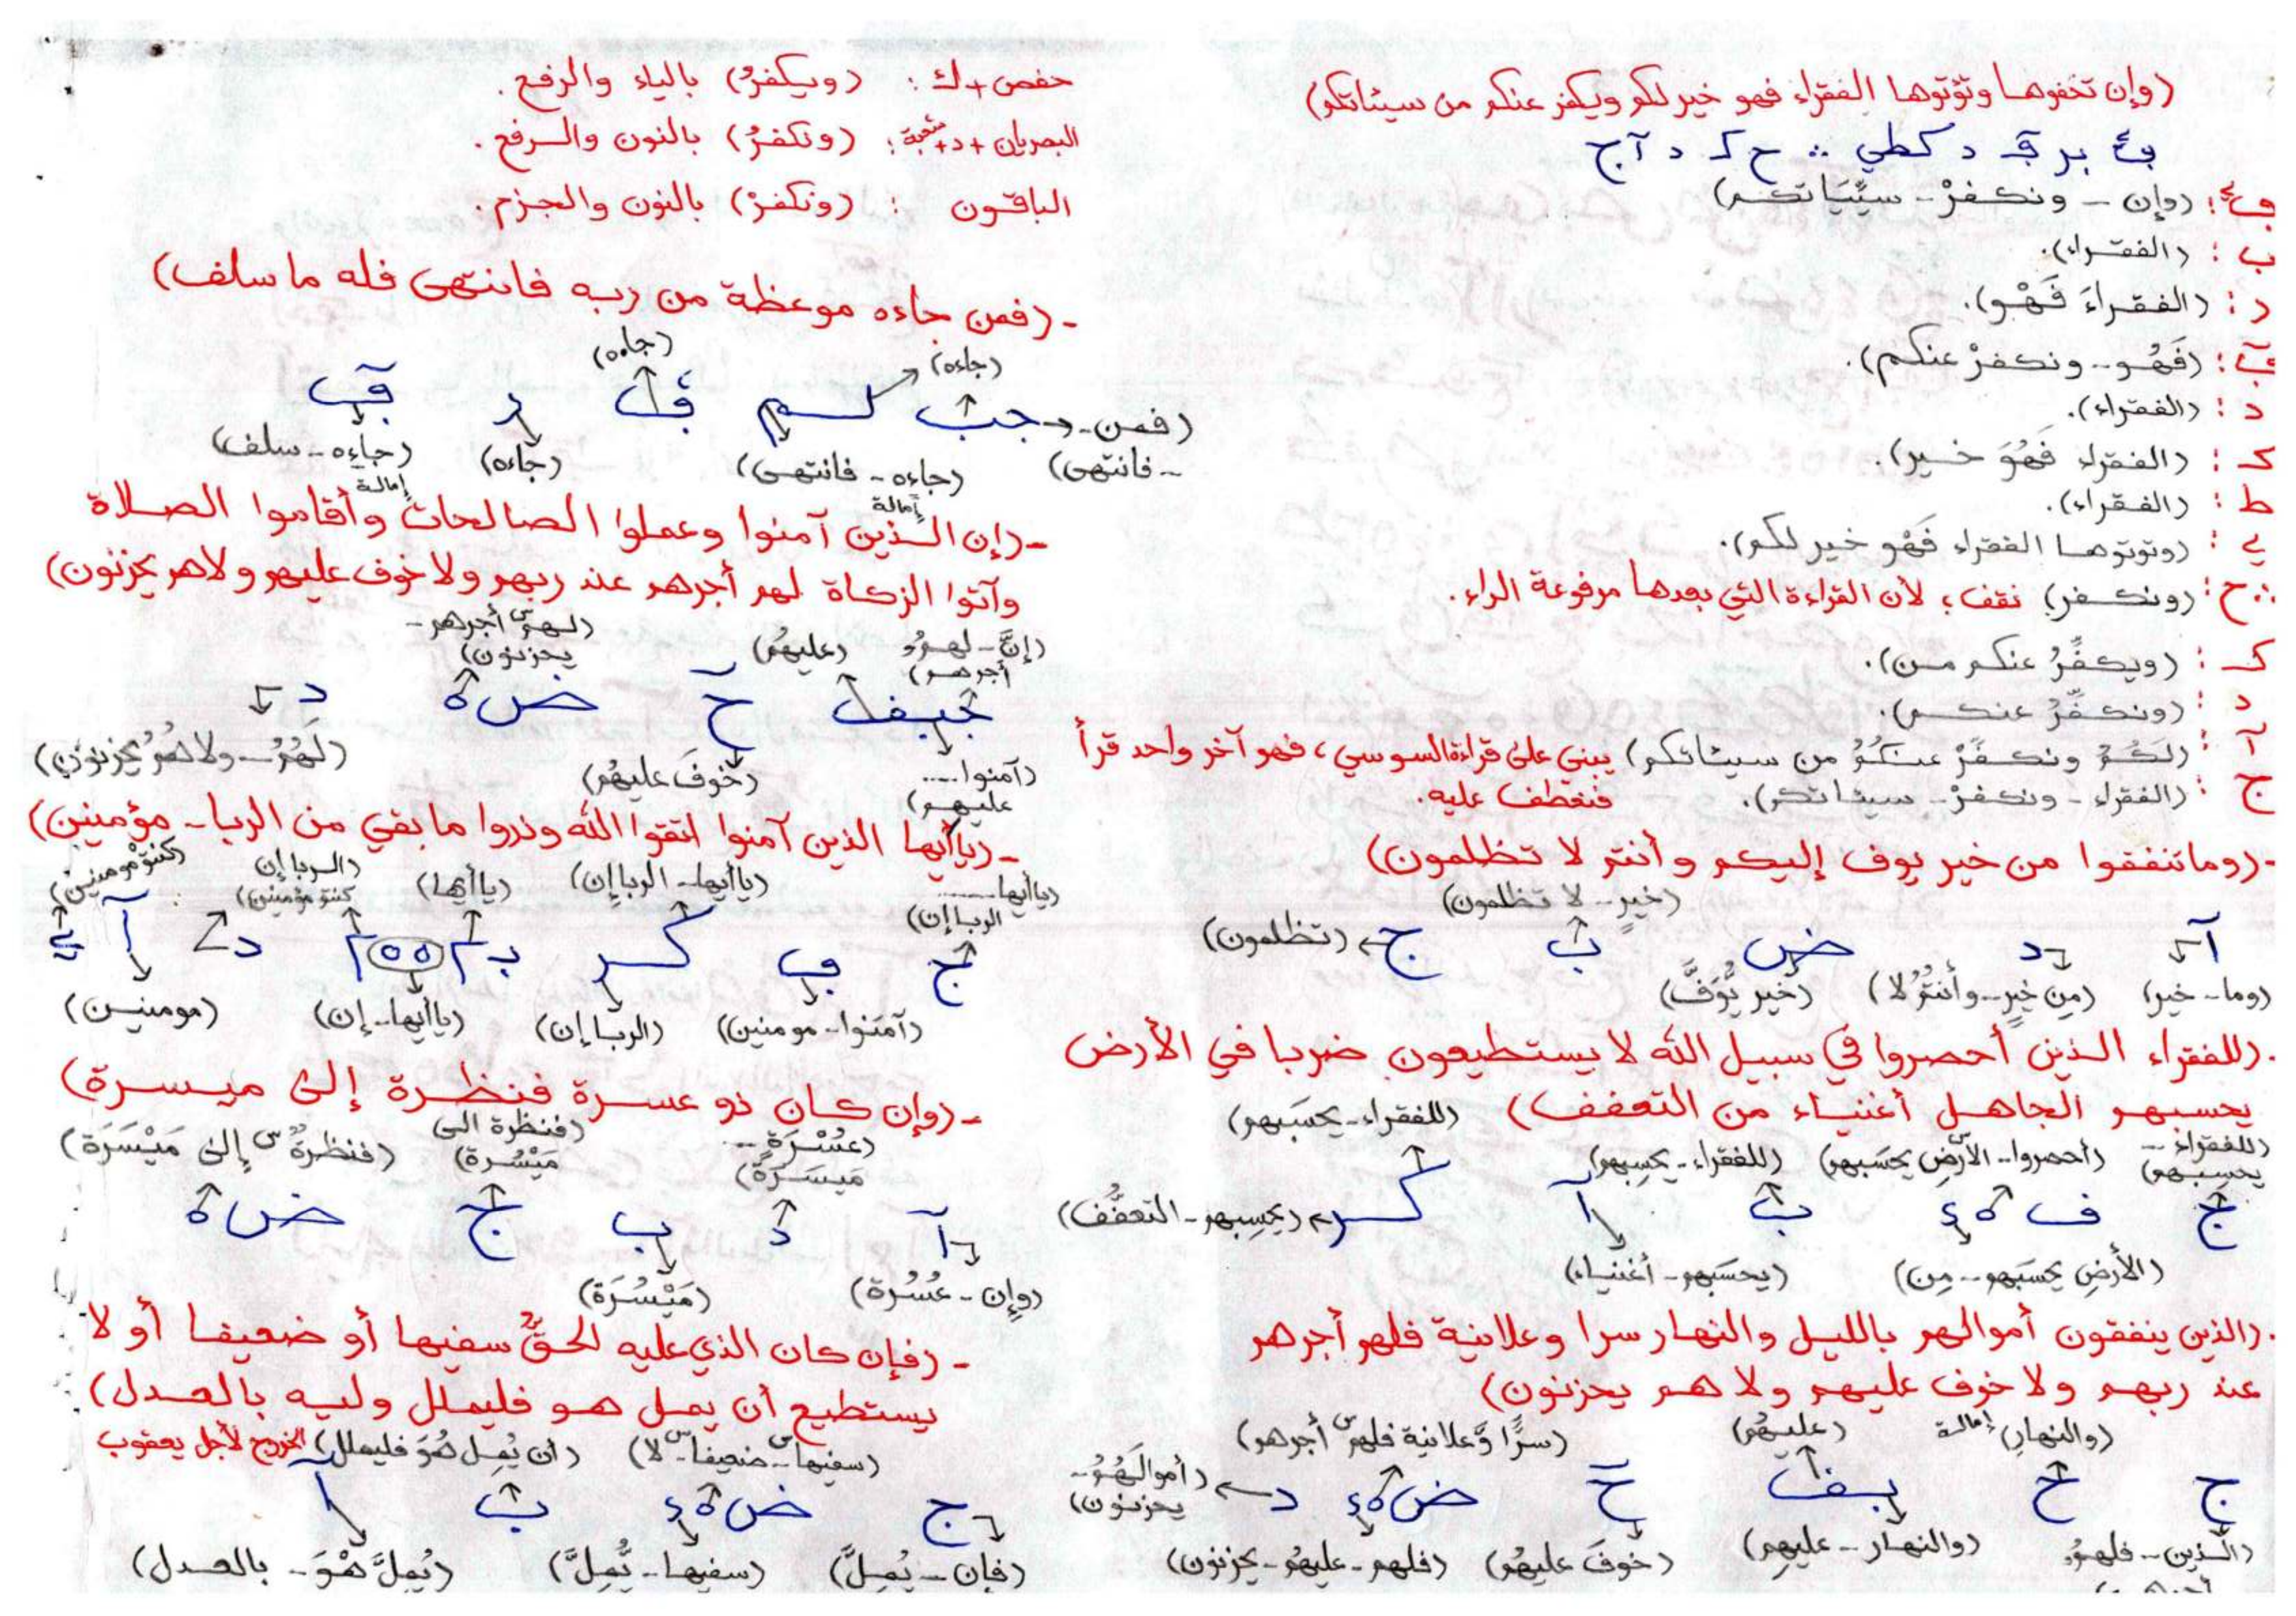 (وإن تخفوها وتؤتوها الفقراء فهو خير لكم ويكفر عنكم من سيئاتكم)
(وإن - ونكفرْ - سيِّئَاتكم)
ب : (الفقراء).
د : (الفقراءَ فَهْو).
(فَهُو - ونكفرْ عنكم).
د : (الفقراء).
ك : (الفقراء فَهُوَ خير).
ط : (الفقراء).
ي : (وتوتوها الفقراء فَهْو خير لكم).
ح : (ونكفر) نقف؛ لأن القراءة التي بعدها مرفوعة الراء.
ك : (ويكفِّرُ عنكم من).
د : (ونكفِّرُ عنكم).
آ : (لكمُ ونكفرْ عنكمُ من سيئاتكم) يبني على قراءة السوسي، فهو آخر واحد قرأ
ج : (الفقراء - ونكفرْ - سيئاتكم). فنعطف عليه.
-(وما تنفقوا من خير يوف إليكم وأنتم لا تظلمون)
(خيرٍ - لا تظلمون)
آ د ض ب ج (تظلمون)
(وما - خير) (مِن خيرٍ - وأنتمُ لا) (خير يُّوَفَّ)
. (للفقراء الذين أحصروا في سبيل الله لا يستطيعون ضربا في الأرض
يحسبهم الجاهل أغنياء من التعفف) (للفقراء - يحسَبهم)
(للفقراء - يحسِبهم) (أحصروا - الأرض يحسَبهم) (للفقراء - يحسِبهم)
(يحسِبهم - التعفُّف)
(الأرضِ يحسَبهم - مِن) (يحسَبهم - أغنياء)
. (الذين ينفقون أموالهم بالليل والنهار سرا وعلانية فلهم أجرهم
عند ربهم ولا خوف عليهم ولا هم يحزنون)
(والنهارِ) إمالة (عليهُم) (سرًّا وَّعلانية فلهم أجرهم)
(أموالَهُمُ - يحزنون)
(الذين - فلهمُ (والنهار - عليهم) (خوفَ عليهُم) (فلهم - عليهُم - يحزنون)
حفص + ك : (ويكفرُ) بالياء والرفع.
البصريان + د + شعبة : (ونكفرُ) بالنون والرفع.
الباقون : (ونكفرْ) بالنون والجزم.
-(فمن جاءه موعظة من ربه فانتهى فله ما سلف)
(جاءه) (جاءه)
(فمن - - فانتهى) (جاءه - فانتهى) (جاءه) (جاءه - سلف)
إمالة إمالة
-(إن الذين آمنوا وعملوا الصالحات وأقاموا الصلاة
وآتوا الزكاة لهم أجرهم عند ربهم ولا خوف عليهم ولا هم يحزنون)
(إنَّ - لهمُ أجرهم) (عليهُم) (لهم أجرهم - يحزنون)
(آمنوا..... عليهم) (خوفَ عليهُم) (لَهُمُ - ولا همُ يحزنون)
-(ياأيها الذين آمنوا اتقوا الله وذروا ما بقي من الربا - مؤمنين)
(ياأيها ...... الربا إن) (ياأيها - الربا إن) (ياأيها) (الربا إن كنتم مؤمنين) (كنتمُ مومنين)
(آمَنوا - مومنين) (الربا إن) (ياأيها - إن) (مومنين)
-(وإن كان ذو عسرة فنظرة إلى ميسرة)
(عُسْرَةٍ - ميسَرَةٍ) (فنظرة الى مَيْسُرة) (فنظرةٌ إلى مَيْسَرَة)
(وإن - عُسُرة) (مَيْسُرَة)
-(فإن كان الذي عليه الحقُّ سفيها أو ضعيفا أو لا
يستطيع أن يمل هو فليملل وليه بالعدل)
(سفيها - ضعيفا - لا) (أن يُمِل هُوَ فليملل) الخروج لأجل يعقوب
ج ض ب آ
(فإن - يُمِلَّ) (سفيها - يُّمِلَّ) (يُمِلَّ هْوَ - بالعدل)